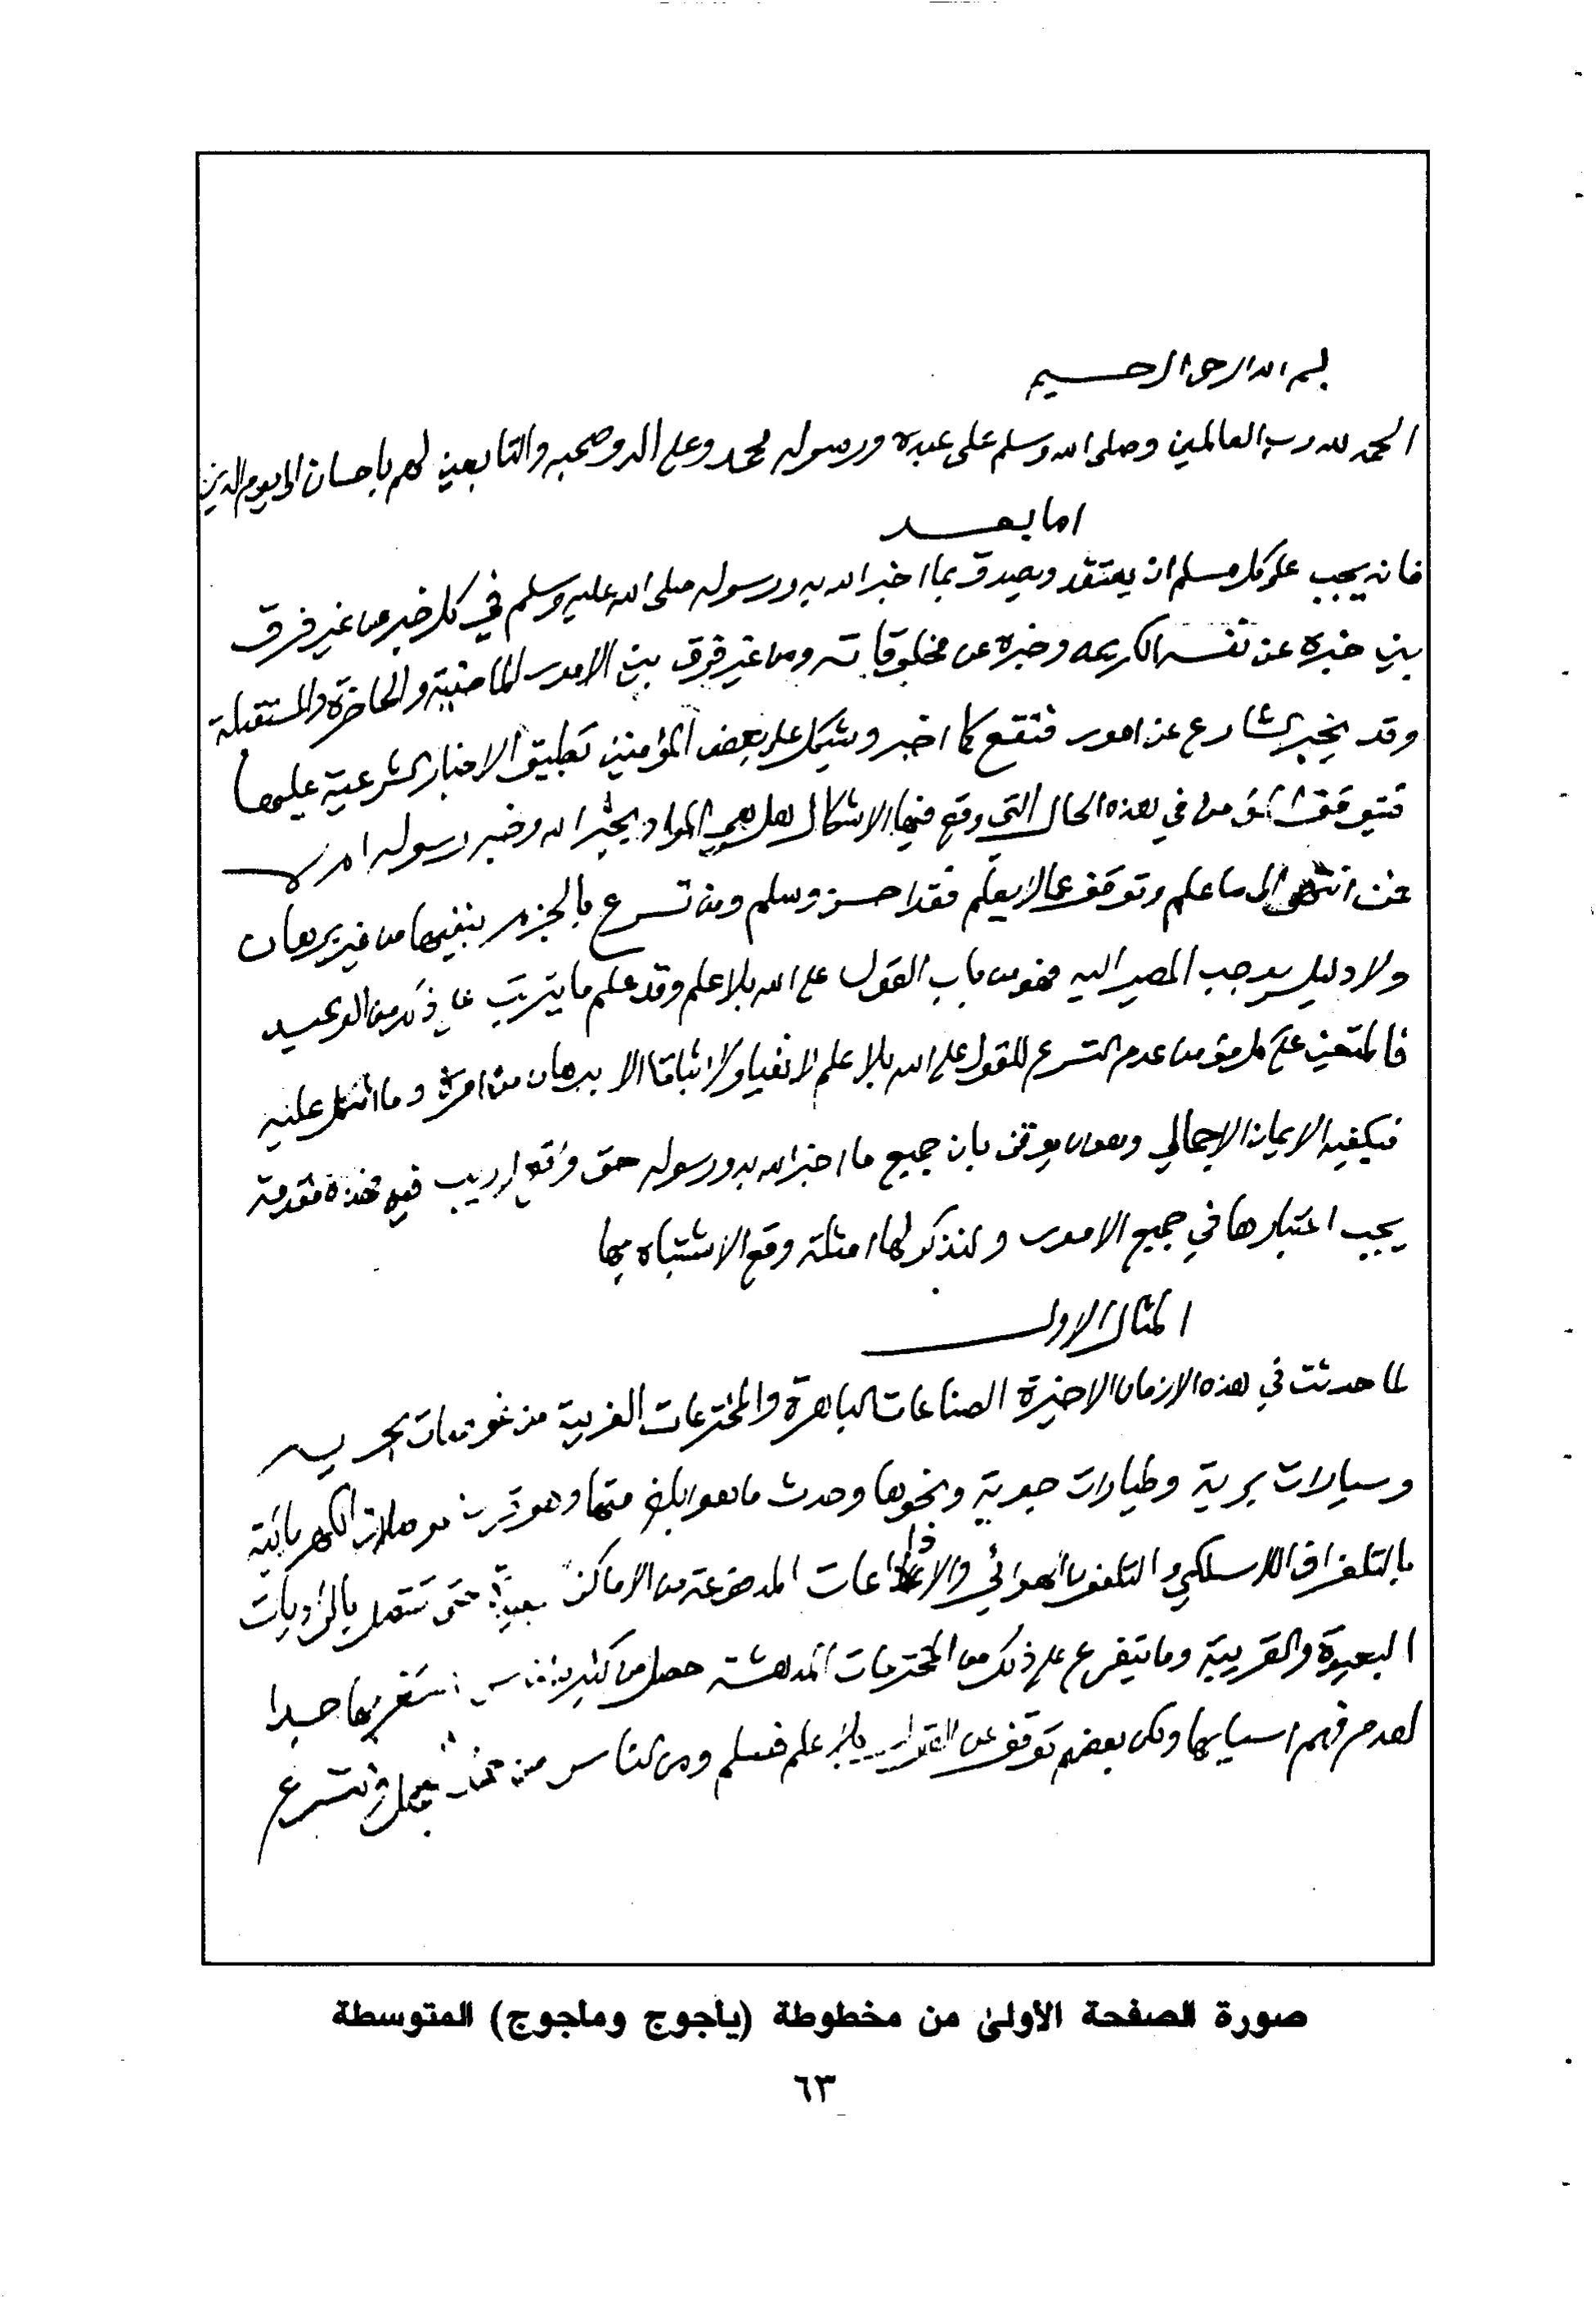 بسم الله الرحمن الرحيم
الحمد لله رب العالمين وصلى الله وسلم على عبده ورسوله محمد وعلى اله وصحبه والتابعين لهم باحسان الى يوم الدين
اما بعد
فانه يجب على كل مسلم ان يعتقد ويصدق بما اخبر الله به ورسوله صلى الله عليه وسلم في كل خبر من غير فرق
بين خبره عن نفسه الكريمه وخبره عن مخلوقاته ومن غير فرق بين الامور الماضية والحاضرة والمستقبلة
وقد يخبر الشارع عن امور فتقع كما اخبر ويشكل على بعض المؤمنين تطبيق الاخبار الشرعية عليها
فتيوقف المؤمن في هذه الحال التي وقع فيها الاشكال هل هي المراد بخبر الله وخبر رسوله ام لا
فمن انتهى الى ما علم وتوقف عما لا يعلم فقد احسن وسلم ومن تسرع بالجزم بنفيها من غير برهان
ولا دليل يوجب المصير اليه فهو من باب القول على الله بلا علم وقد علم ما يترتب على ذلك من الوعيد
فالمتعين على المؤمن عدم التسرع للقول على الله بلا علم لا نفيا ولا اثباتا الا ببرهان من امره وما اشكل عليه
فيكفيه الايمان الاجمالي وهو ان يوقن بان جميع ما اخبر الله به ورسوله حق واقع لا ريب فيه فهذه مقدمة
يجب اعتبارها في جميع الامور ولنذكر لها امثلة وقع الاشتباه بها
المثال الاول
لما حدثت في هذه الازمان الاخيرة الصناعات الباهرة والمخترعات الغريبة من غواصات بحريه
وسيارات برية وطيارات جوية ونحوها وحدث ما هو ابلغ منها وهو تقريب مواصلات الكهربائية
بالتلغراف اللاسلكي والتلفون الهوائي والاذاعات المدفوعة من الاماكن بعيدة حتى تتصل بالراديات
البعيدة والقريبة وما يتفرع على ذلك من المخترعات المدهشة حصل من كثير من الناس استغرابها جدا
لعدم فهم اسبابها ولكن بعضهم توقف عن القول بلا علم فسلم ومن الناس من تسرع
صورة الصفحة الأولىٰ من مخطوطة (يأجوج ومأجوج) المتوسطة
٦٣